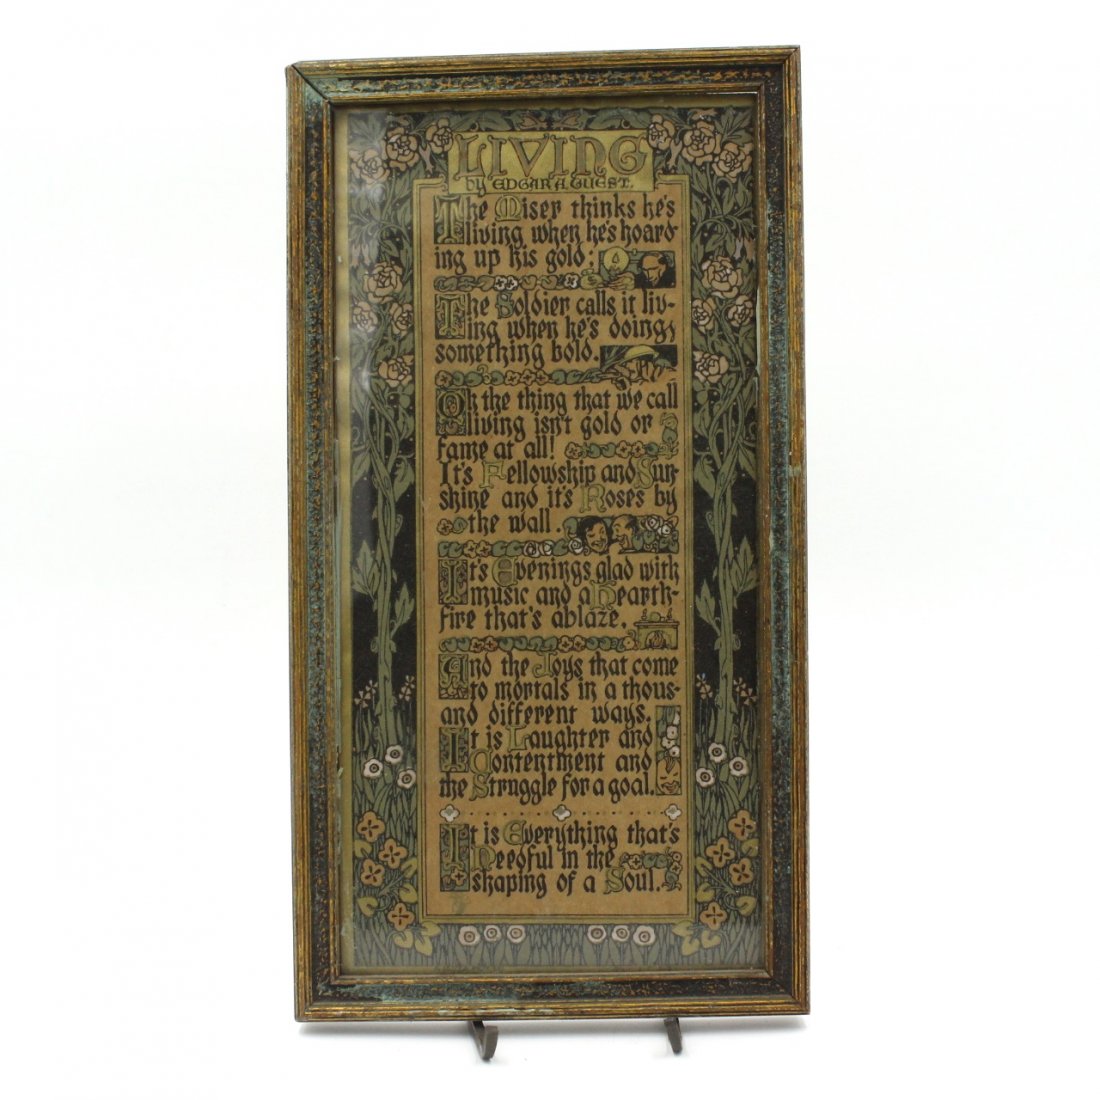 LIVING
by EDGAR A. GUEST.
The Miser thinks he's
living when he's hoard-
ing up his gold;
The Soldier calls it liv-
ing when he's doing
something bold.
Oh the thing that we call
living isn't gold or
fame at all!
It's Fellowship and Sun-
shine and it's Roses by
the wall.
It's Evenings glad with
music and a hearth-
fire that's ablaze,
And the Joys that come
to mortals in a thous-
and different ways.
It is Laughter and
Contentment and
the Struggle for a goal.
It is Everything that's
Needful in the
shaping of a Soul.